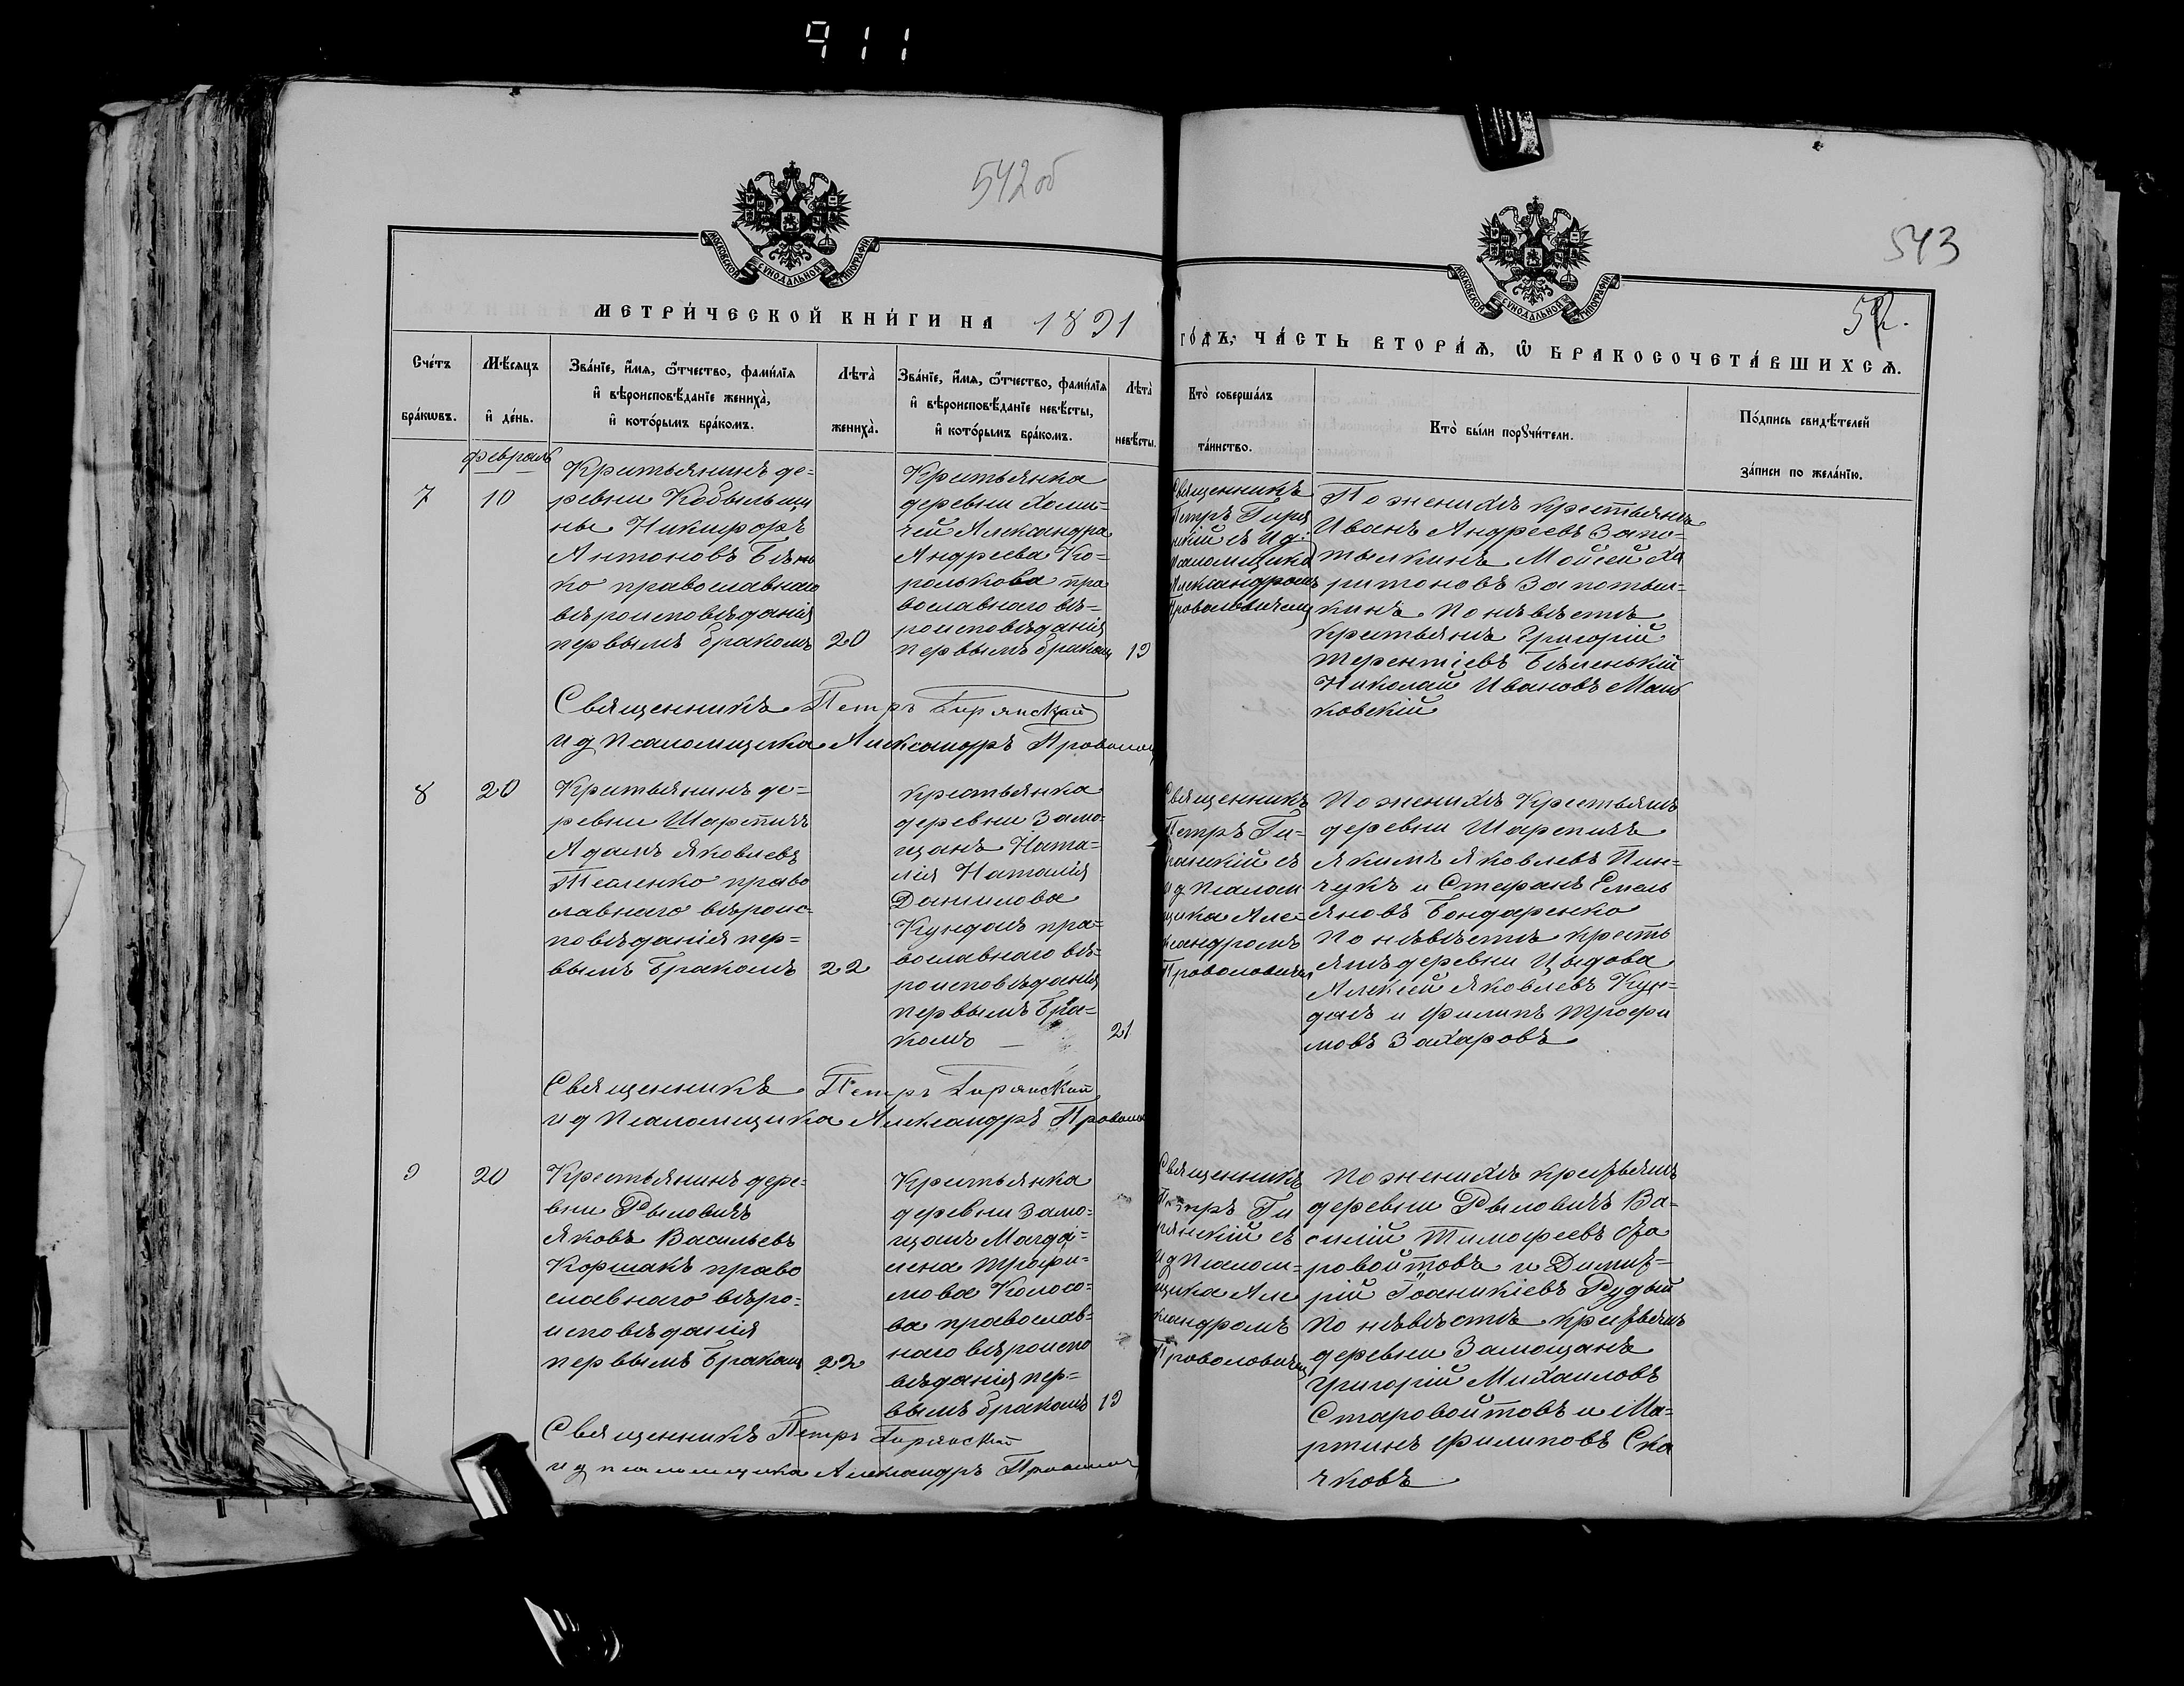 911
542об
543
52.
МОСКОВСКОЙ СѴНОДАЛЬНОЙ ТИПОГРАФІИ
МОСКОВСКОЙ СѴНОДАЛЬНОЙ ТИПОГРАФІИ
МЕТРИ́ЧЕСКОЙ КНИ́ГИ НА 1891
ГО́ДЪ, ЧА́СТЬ ВТОРА́Ѧ, Ѡ҆ БРАКОСОЧЕТА́ВШИХСѦ.
Сче́тъ бра́кѡвъ.
Мѣ́сяцъ и҆ де́нь.
Зва́нїе, и҆́мѧ, ѻ҆́тчество, фами́лїѧ
и҆ вѣроисповѣ́данїе жениха̀,
и҆ кото́рымъ бра́комъ.
Лѣта̀ жениха̀.
Зва́нїе, и҆́мѧ, ѻ҆́тчество, фами́лїѧ
и҆ вѣроисповѣ́данїе невѣ́сты,
и҆ кото́рымъ бра́комъ.
Лѣта̀ невѣ́сты.
Кто̀ соверша́лъ та́инство.
Кто̀ бы́ли порꙋчи́тели.
По́дпись свидѣ́телей за́писи по жела́нїю.
февраль
7
10
Крестьянинъ де-
ревни Кобыльщи
ны Никифоръ
Антоновъ
ко православнаго
вѣроисповѣданія
первымъ бракомъ
20
Крестьянка
деревни Хоми-
чей Александра
Андреева Ко-
ролькова пра
вославнаго вѣ-
роисповѣданія
первымъ бракомъ
19
Священникъ
Петръ Гиря
нскій съ И.д.
псаломщика
Александромъ
По женихѣ крестьяне
Иванъ Андреевъ Запо-
тылкинъ Мойсей Ха
ритоновъ Запотыл-
кинъ по невѣстѣ
крестьяне Григорій
Терентіевъ Бѣленькій
Николай Ивановъ
ковскій
Священникъ Петръ Гирянскій
и д псаломщика Александръ
8
20
Крестьянинъ де-
ревни Шарпичъ
Адамъ Яковлевъ
право
славнаго вѣроис-
повѣданія пер-
вымъ бракомъ
22
Крестьянка
деревни Замо-
щанъ Ната-
лія Наталія
Данилова
Кундасъ пра-
вославнаго вѣ-
роисповѣданія
первымъ бра-
комъ —
21
Священникъ
Петръ Ги-
рянскій съ
и д псалом
щика Але-
ксандромъ
По женихѣ Крестьяне
деревни Шарпичъ
Якимъ Яковлевъ Пин-
чукъ и Стефанъ Емель
яновъ Бондаренко
по невѣстѣ кресть
яне деревни
Алексей Яковлевъ Кун-
дасъ и Филипъ Трофи
мовъ Захаровъ
Священникъ Петръ Гирянскій
и д псаломщика Александръ
9
20
Крестьянинъ дере-
вни Рыловичъ
Яковъ Васильевъ
Коршакъ право
славнаго вѣро-
исповѣданія
первымъ бракомъ
22
Крестьянка
деревни Замо-
щанъ Магда-
лена Трофи-
мова Колосо-
ва православ-
наго вѣроиспо
вѣданія пер-
вымъ бракомъ
19
Священникъ
Петръ Ги
рянскій съ
и д псалом-
щика Але
ксандромъ
По женихѣ крестьяне
деревни Рыловичъ Ва-
силій Тимофеевъ
ровойтовъ и Димит-
рій Іоаникіевъ Рудый
по невѣстѣ крестьяне
деревни Замощанъ
Григорій Михаиловъ
Старовойтовъ и Ма-
ртинъ Филиповъ Ска
чковъ
Священникъ Петръ Гирянскій
и д псаломщика Александръ